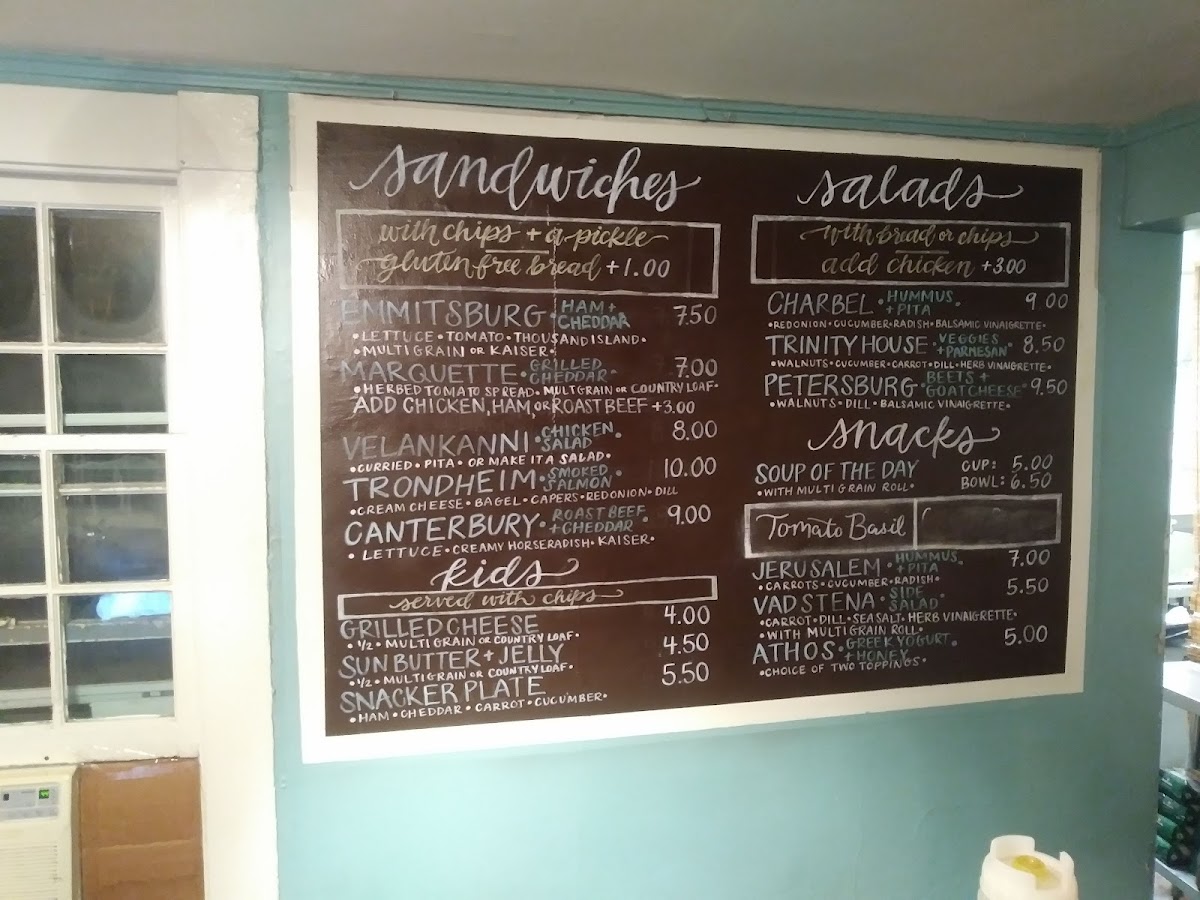 sandwiches
with chips + a pickle
gluten free bread +1.00
EMMITSBURG • HAM + CHEDDAR 7.50
• LETTUCE • TOMATO • THOUSAND ISLAND •
• MULTI GRAIN OR KAISER •
MARQUETTE • GRILLED CHEDDAR • 7.00
• HERBED TOMATO SPREAD • MULTGRAIN OR COUNTRY LOAF •
ADD CHICKEN, HAM, OR ROAST BEEF +3.00
VELANKANNI • CHICKEN SALAD • 8.00
• CURRIED • PITA • OR MAKE IT A SALAD •
TRONDHEIM • SMOKED SALMON • 10.00
• CREAM CHEESE • BAGEL • CAPERS • RED ONION • DILL
CANTERBURY • ROAST BEEF + CHEDDAR • 9.00
• LETTUCE • CREAMY HORSERADISH • KAISER •
kids
served with chips
GRILLED CHEESE 4.00
• 1/2 • MULTI GRAIN OR COUNTRY LOAF •
SUN BUTTER + JELLY 4.50
• 1/2 • MULTIGRAIN OR COUNTRY LOAF •
SNACKER PLATE 5.50
• HAM • CHEDDAR • CARROT • CUCUMBER •
salads
with bread or chips
add chicken +3.00
CHARBEL • HUMMUS + PITA • 9.00
• RED ONION • CUCUMBER • RADISH • BALSAMIC VINAIGRETTE •
TRINITY HOUSE • VEGGIES + PARMESAN • 8.50
• WALNUTS • CUCUMBER • CARROT • DILL • HERB VINAIGRETTE •
PETERSBURG • BEETS + GOAT CHEESE • 9.50
• WALNUTS • DILL • BALSAMIC VINAIGRETTE •
snacks
SOUP OF THE DAY CUP: 5.00
• WITH MULTI GRAIN ROLL • BOWL: 6.50
Tomato Basil
JERUSALEM • HUMMUS + PITA • 7.00
• CARROTS • CUCUMBER • RADISH •
VADSTENA • SIDE SALAD • 5.50
• CARROT • DILL • SEA SALT • HERB VINAIGRETTE •
• WITH MULTI GRAIN ROLL •
ATHOS • GREEK YOGURT + HONEY • 5.00
• CHOICE OF TWO TOPPINGS •